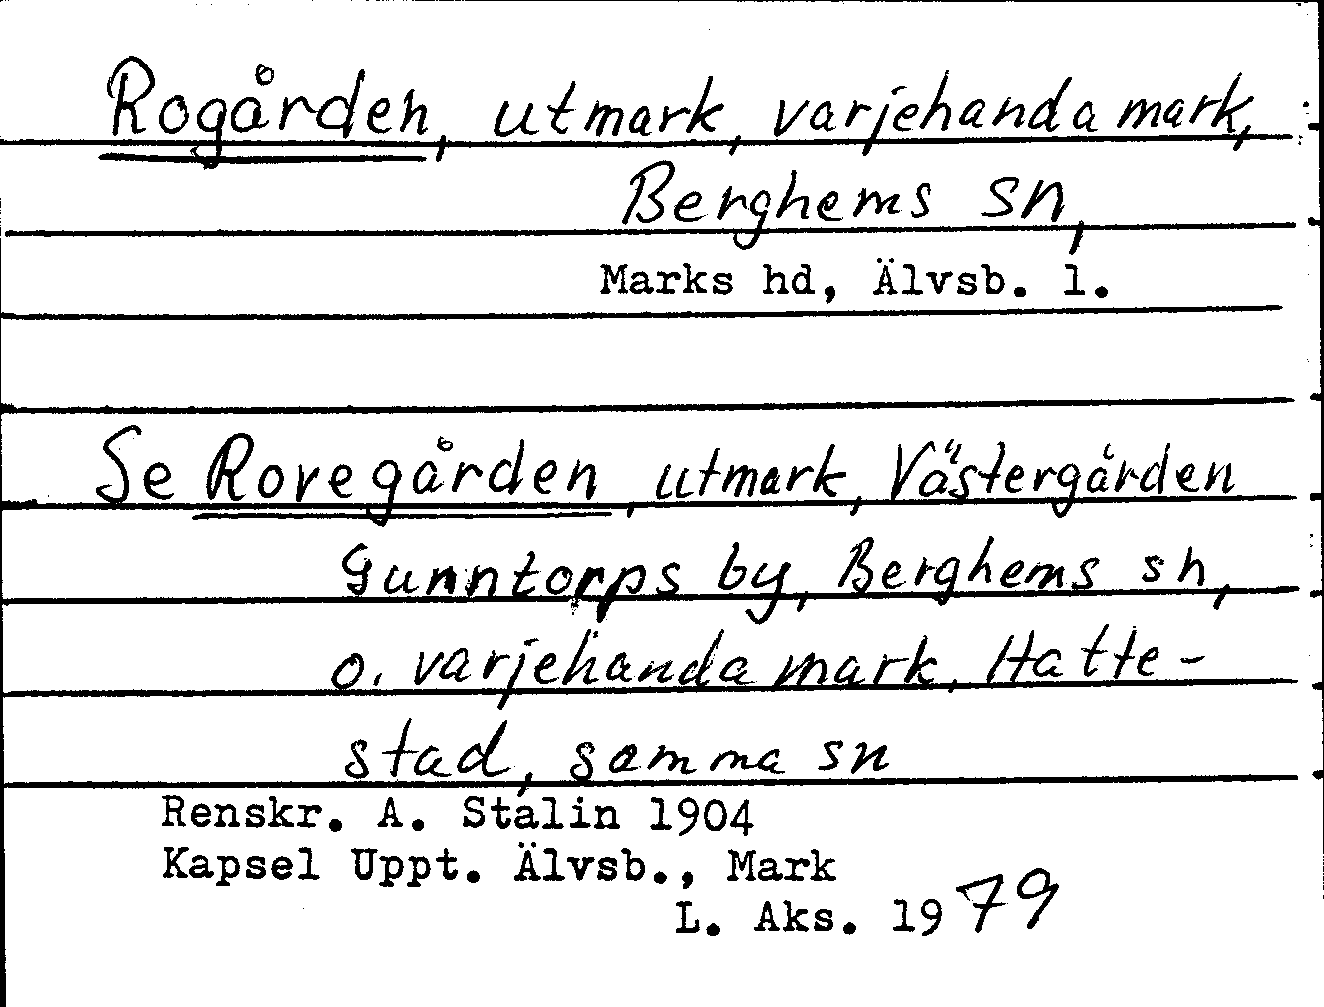 Rogården, utmark, varjehanda mark,
Berghems sn,
Marks hd, Älvsb. l.
Se Rovegården, utmark, Västergården
Gunntorps by, Berghems sn,
o. varjehanda mark, Hatte-
stad, samma sn
Renskr. A. Stálin 1904
Kapsel Uppt. Älvsb., Mark
L. Aks. 1979